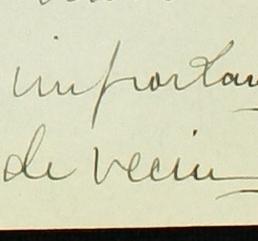 importan
de vecin